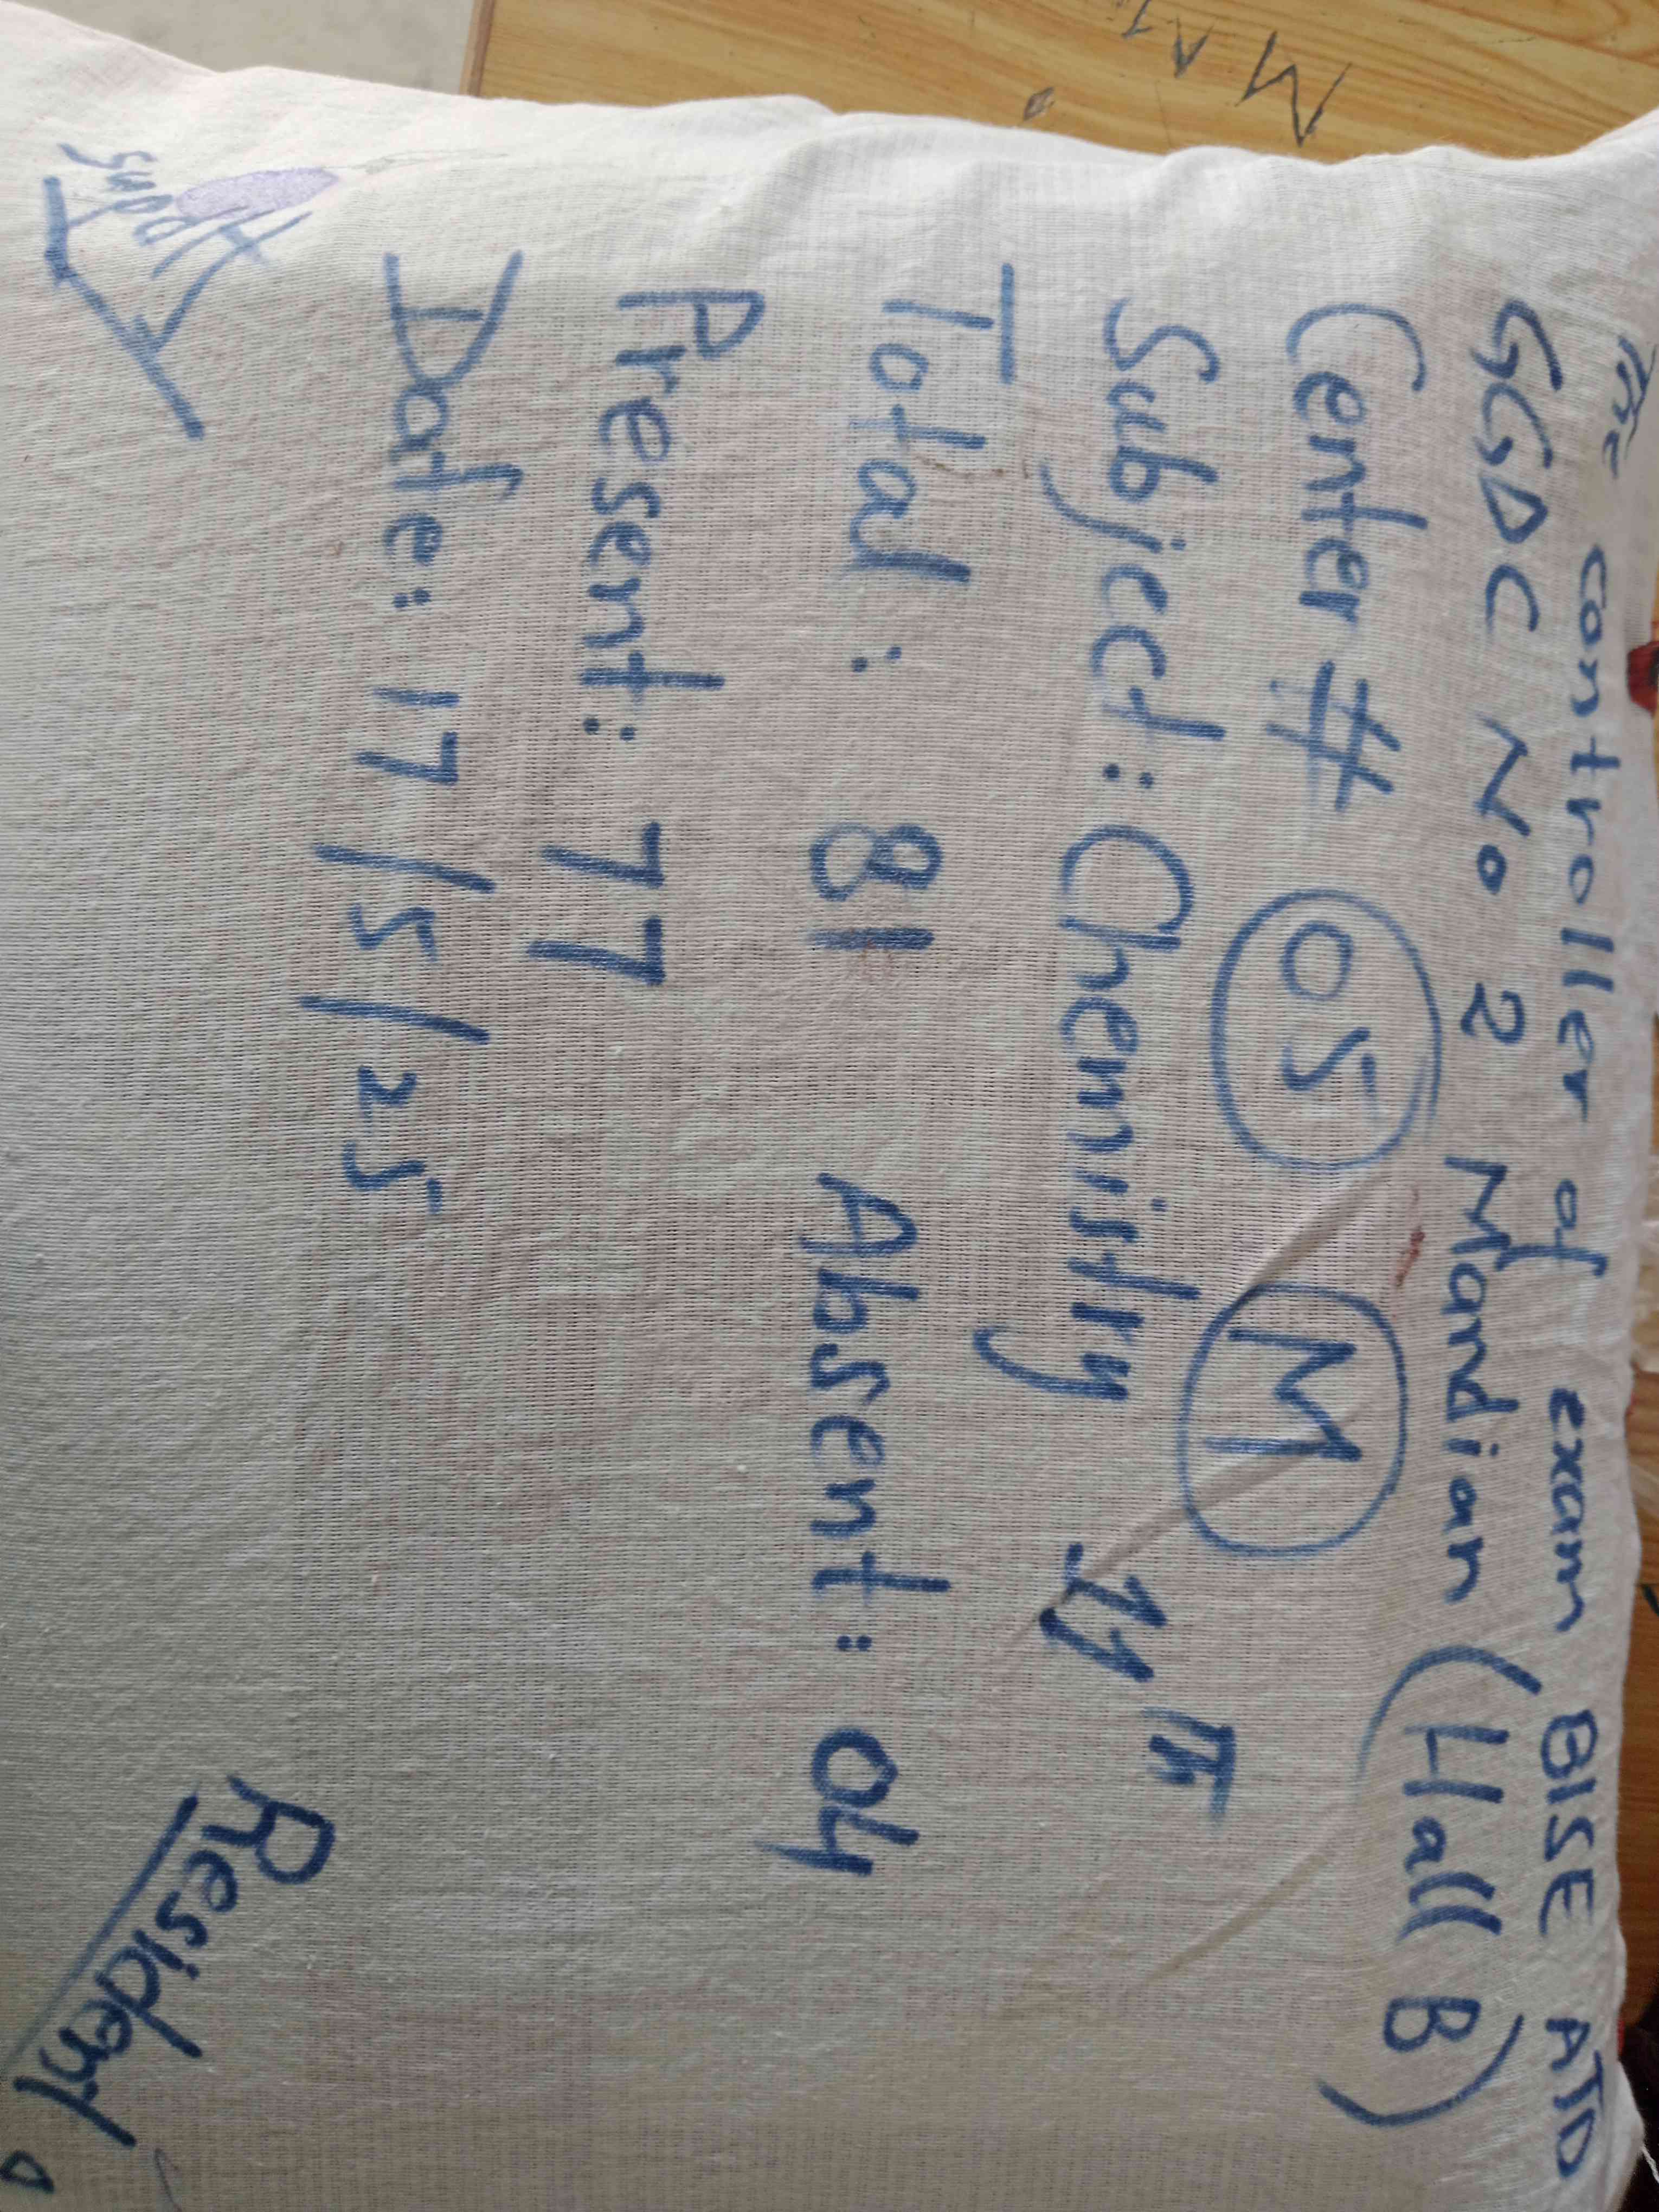 The controller of exam BISE ATD
GGDC No 2 Mandian (Hall B)
Center # 05 M
Subject: Chemistry 11th
Total: 81 Absent: 04
Present: 77
Date: 17/5/25
Supdt
Resident